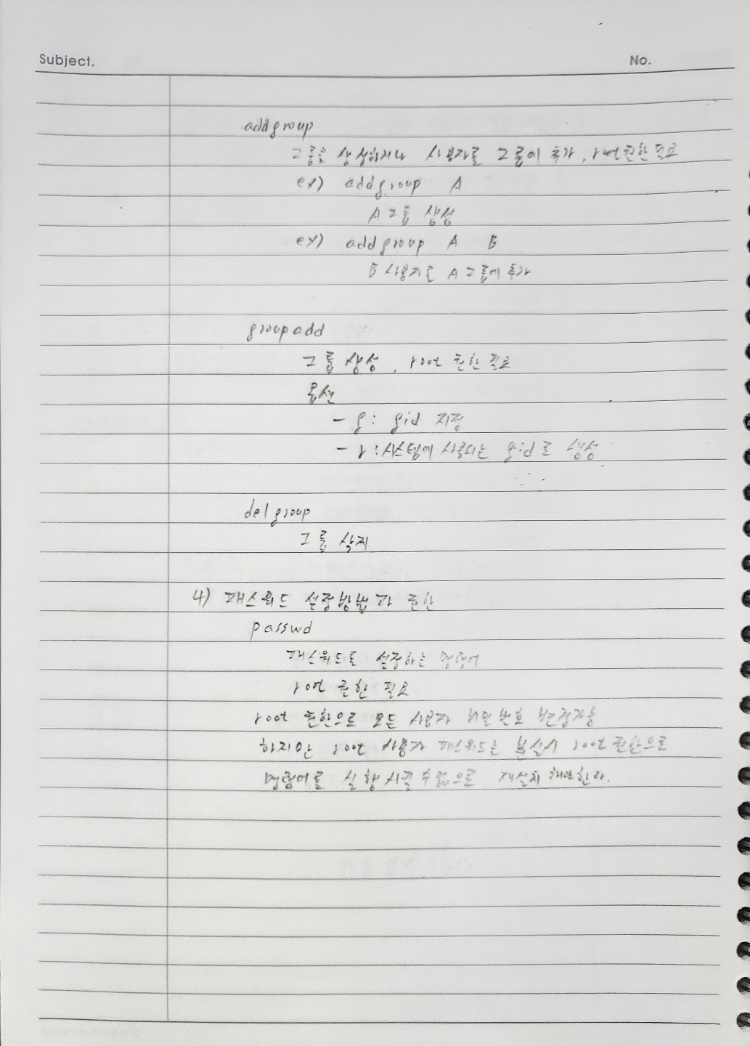 Subject.
No.
addgroup
그룹을 생성하거나 사용자를 그룹에 추가, root 권한 필요
ex) addgroup A
A 그룹 생성
ex) addgroup A B
B 사용자를 A 그룹에 추가
groupadd
그룹 생성, root 권한 필요
옵션
- g : gid 지정
- r : 시스템에 사용되는 gid로 생성
delgroup
그룹 삭제
4) 패스워드 설정방법과 권한
passwd
패스워드를 설정하는 명령어
root 권한 필요
root 권한으로 모든 사용자 비밀번호 변경가능
하지만 root 사용자 패스워드는 분실시 root 권한으로
명령어로 실행시킬 수 없으므로 재설치 해야한다.